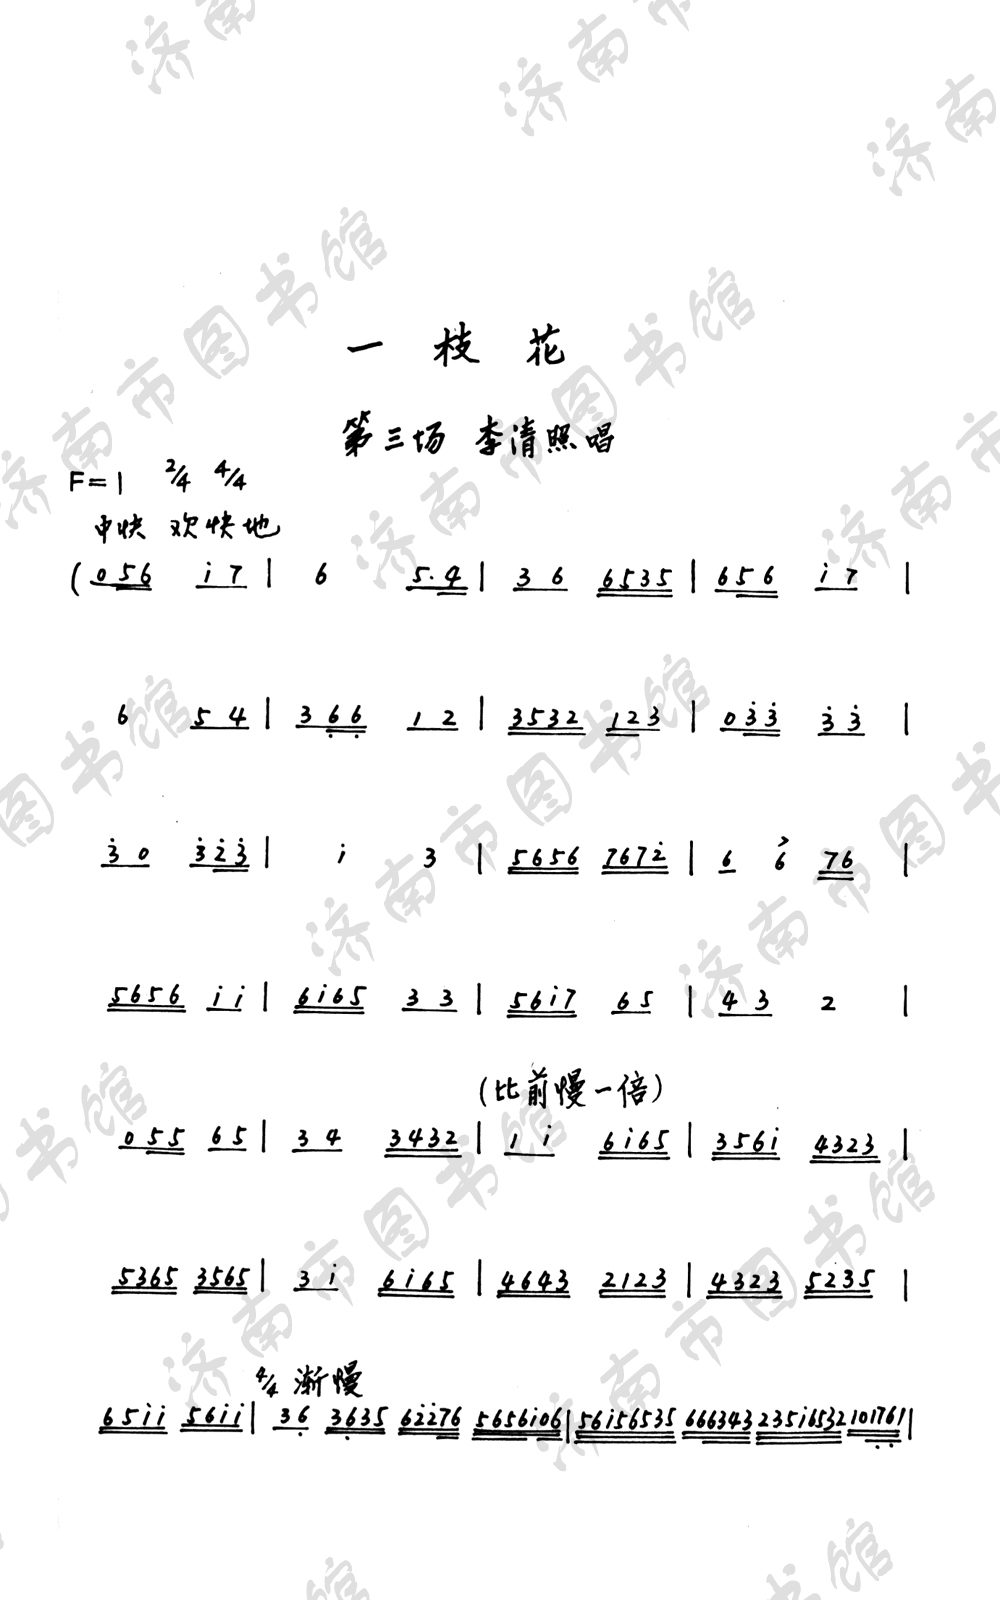 一枝花
第三场 李清照唱
F=1 2/4 4/4
中快 欢快地
(056 i7 | 6 5·4 | 36 6535 | 656 i7 |
6 54 | 366 12 | 3532 123 | 033 33 |
30 323 | i 3 | 5656 7672 | 6 6 76 |
5656 ii | 6i65 33 | 56i7 65 | 43 2 |
(比前慢一倍)
055 65 | 34 3432 | 1i 6i65 | 356i 4323 |
5365 3565 | 3i 6i65 | 4643 2123 | 4323 5235 |
4/4 渐慢
65ii 56ii | 36 3635 62276 5656i06 | 56i56535 666343 235i6532 101761 |
济南市图书馆